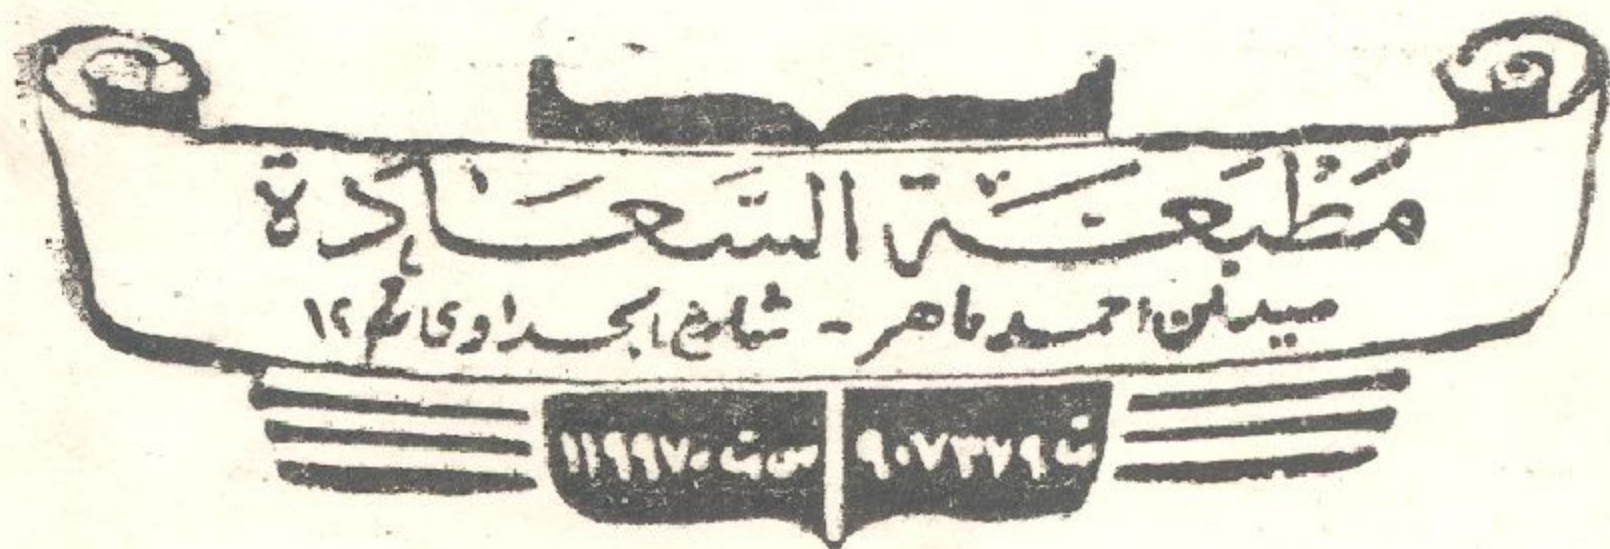 مَطْبَعَة السَّعَادَة
ميدان احمد ماهر - شارع الجداوى رقم ١٢
ت ٩٠٧٣٧٩ س ت ١١٩٩٧٠